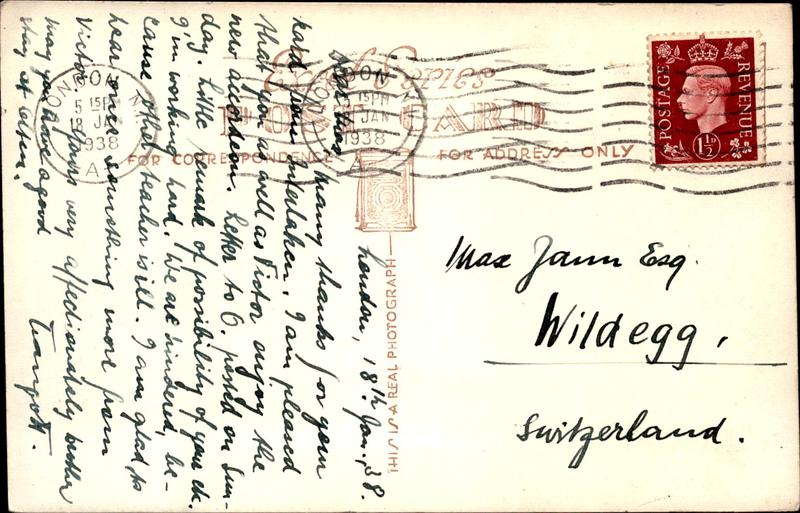 London, 18th Jan. 38.
Dear Max, Many thanks for your
kard from Interlaken. I am pleased
that you as well as Victor enjoy the
new accordeon. Letter to O. posted on Sun-
day. Little remark of possibility of your ch.
g'in working hard. We are hindered, be-
cause other teacher is ill. I am glad to
hear once something more from
Victor. Yours very affectionately brother
may you have a good
stay at
Traugott.
POST CARD
FOR CORRESPONDENCE
FOR ADDRESS ONLY
THIS IS A REAL PHOTOGRAPH
LONDON
5 15PM
18 JAN
1938
A
LONDON
5 15PM
JAN
1938
A
POSTAGE
REVENUE
1½D
Max Jann Esq.
Wildegg,
Switzerland.